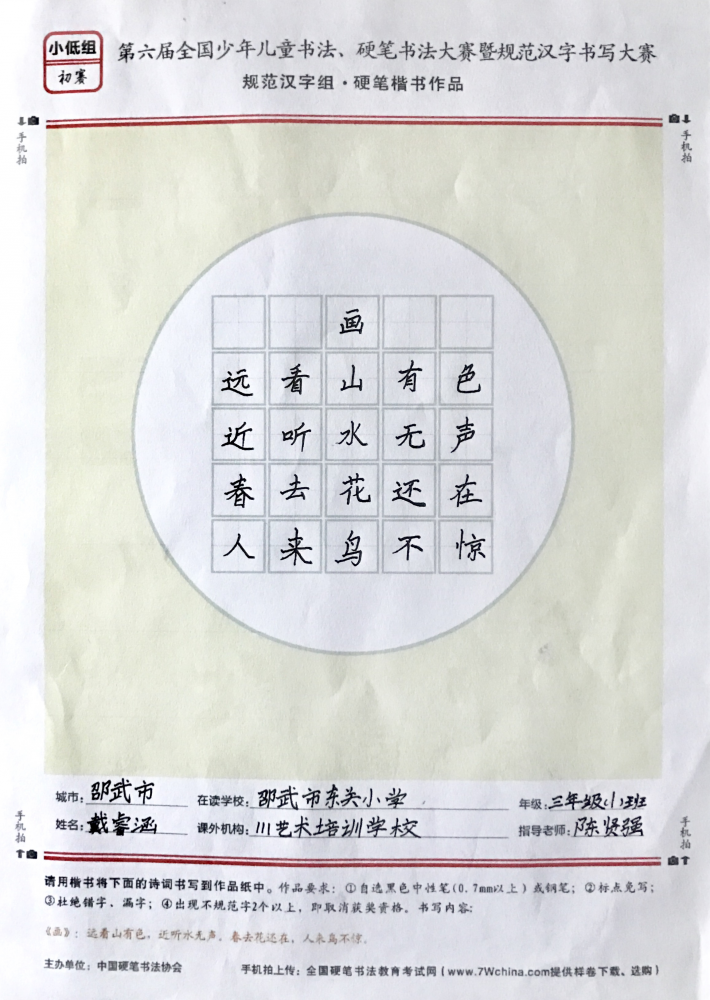 小低组
初赛
第六届全国少年儿童书法、硬笔书法大赛暨规范汉字书写大赛
规范汉字组·硬笔楷书作品
手机拍
手机拍
画
远看山有色
近听水无声
春去花还在
人来鸟不惊
城市：邵武市 在读学校：邵武市东关小学 年级：三年级(1)班
姓名：戴睿涵 课外机构：川艺术培训学校 指导老师：陈贤强
手机拍
手机拍
请用楷书将下面的诗词书写到作品纸中。作品要求：①自选黑色中性笔(0.7mm以上)或钢笔；②标点免写；
③杜绝错字、漏字；④出现不规范字2个以上，即取消获奖资格。书写内容：
《画》：远看山有色，近听水无声。春去花还在，人来鸟不惊。
主办单位：中国硬笔书法协会 手机拍上传：全国硬笔书法教育考试网(www.7Wchina.com提供样卷下载、选购)